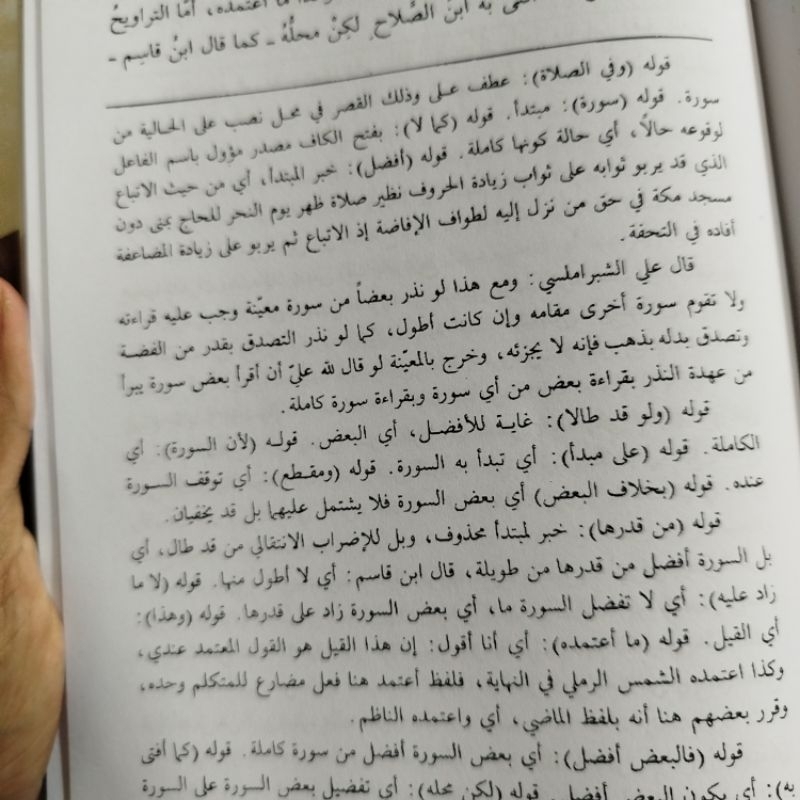 أفتى به ابن الصَّلاح. لكِنْ محلُّهُ ـ كما قال ابنُ قاسِم ـ
ما اعتمده، أمّا التراويحُ
قوله (وفي الصلاة): عطف على وذلك القصر في محل نصب على الحالية من
سورة. قوله (سورة): مبتدأ. قوله (كملا): بفتح الكاف مصدر مؤول باسم الفاعل
لوقوعه حالاً، أي حالة كونها كاملة. قوله (أفضل): خبر المبتدأ، أي من حيث الاتباع
الذي قد يربو ثوابه على ثواب زيادة الحروف نظير صلاة ظهر يوم النحر للحاج بمنى دون
مسجد مكة في حق من نزل إليه لطواف الإفاضة إذ الاتباع ثم يربو على زيادة المضاعفة
أفاده في التحفة.
قال علي الشبراملسي: ومع هذا لو نذر بعضاً من سورة معيّنة وجب عليه قراءته
ولا تقوم سورة أخرى مقامه وإن كانت أطول، كما لو نذر التصدق بقدر من الفضة
وتصدق بدله بذهب فإنه لا يجزئه، وخرج بالمعيّنة لو قال لله عليّ أن أقرأ بعض سورة يبرأ
من عهدة النذر بقراءة بعض من أي سورة وبقراءة سورة كاملة.
قوله (ولو قد طالا): غاية للأفضل، أي البعض. قوله (لأن السورة): أي
الكاملة. قوله (على مبدأ): أي تبدأ به السورة. قوله (ومقطع): أي توقف السورة
عنده. قوله (بخلاف البعض) أي بعض السورة فلا يشتمل عليهما بل قد يخفيان.
قوله (من قدرها): خبر لمبتدأ محذوف، وبل للإضراب الانتقالي من قد طال، أي
بل السورة أفضل من قدرها من طويلة، قال ابن قاسم: أي لا أطول منها. قوله (لا ما
زاد عليه): أي لا تفضل السورة ما، أي بعض السورة زاد على قدرها. قوله (وهذا):
أي القيل. قوله (ما أعتمده): أي أنا أقول: إن هذا القيل هو القول المعتمد عندي،
وكذا اعتمده الشمس الرملي في النهاية، فلفظ أعتمد هنا فعل مضارع للمتكلم وحده،
وقرر بعضهم هنا أنه بلفظ الماضي، أي واعتمده الناظم.
قوله (فالبعض أفضل): أي بعض السورة أفضل من سورة كاملة. قوله (كما أفتى
به): أي بكون البعض أفضل. قوله (لكن محله): أي تفضيل بعض السورة على السورة